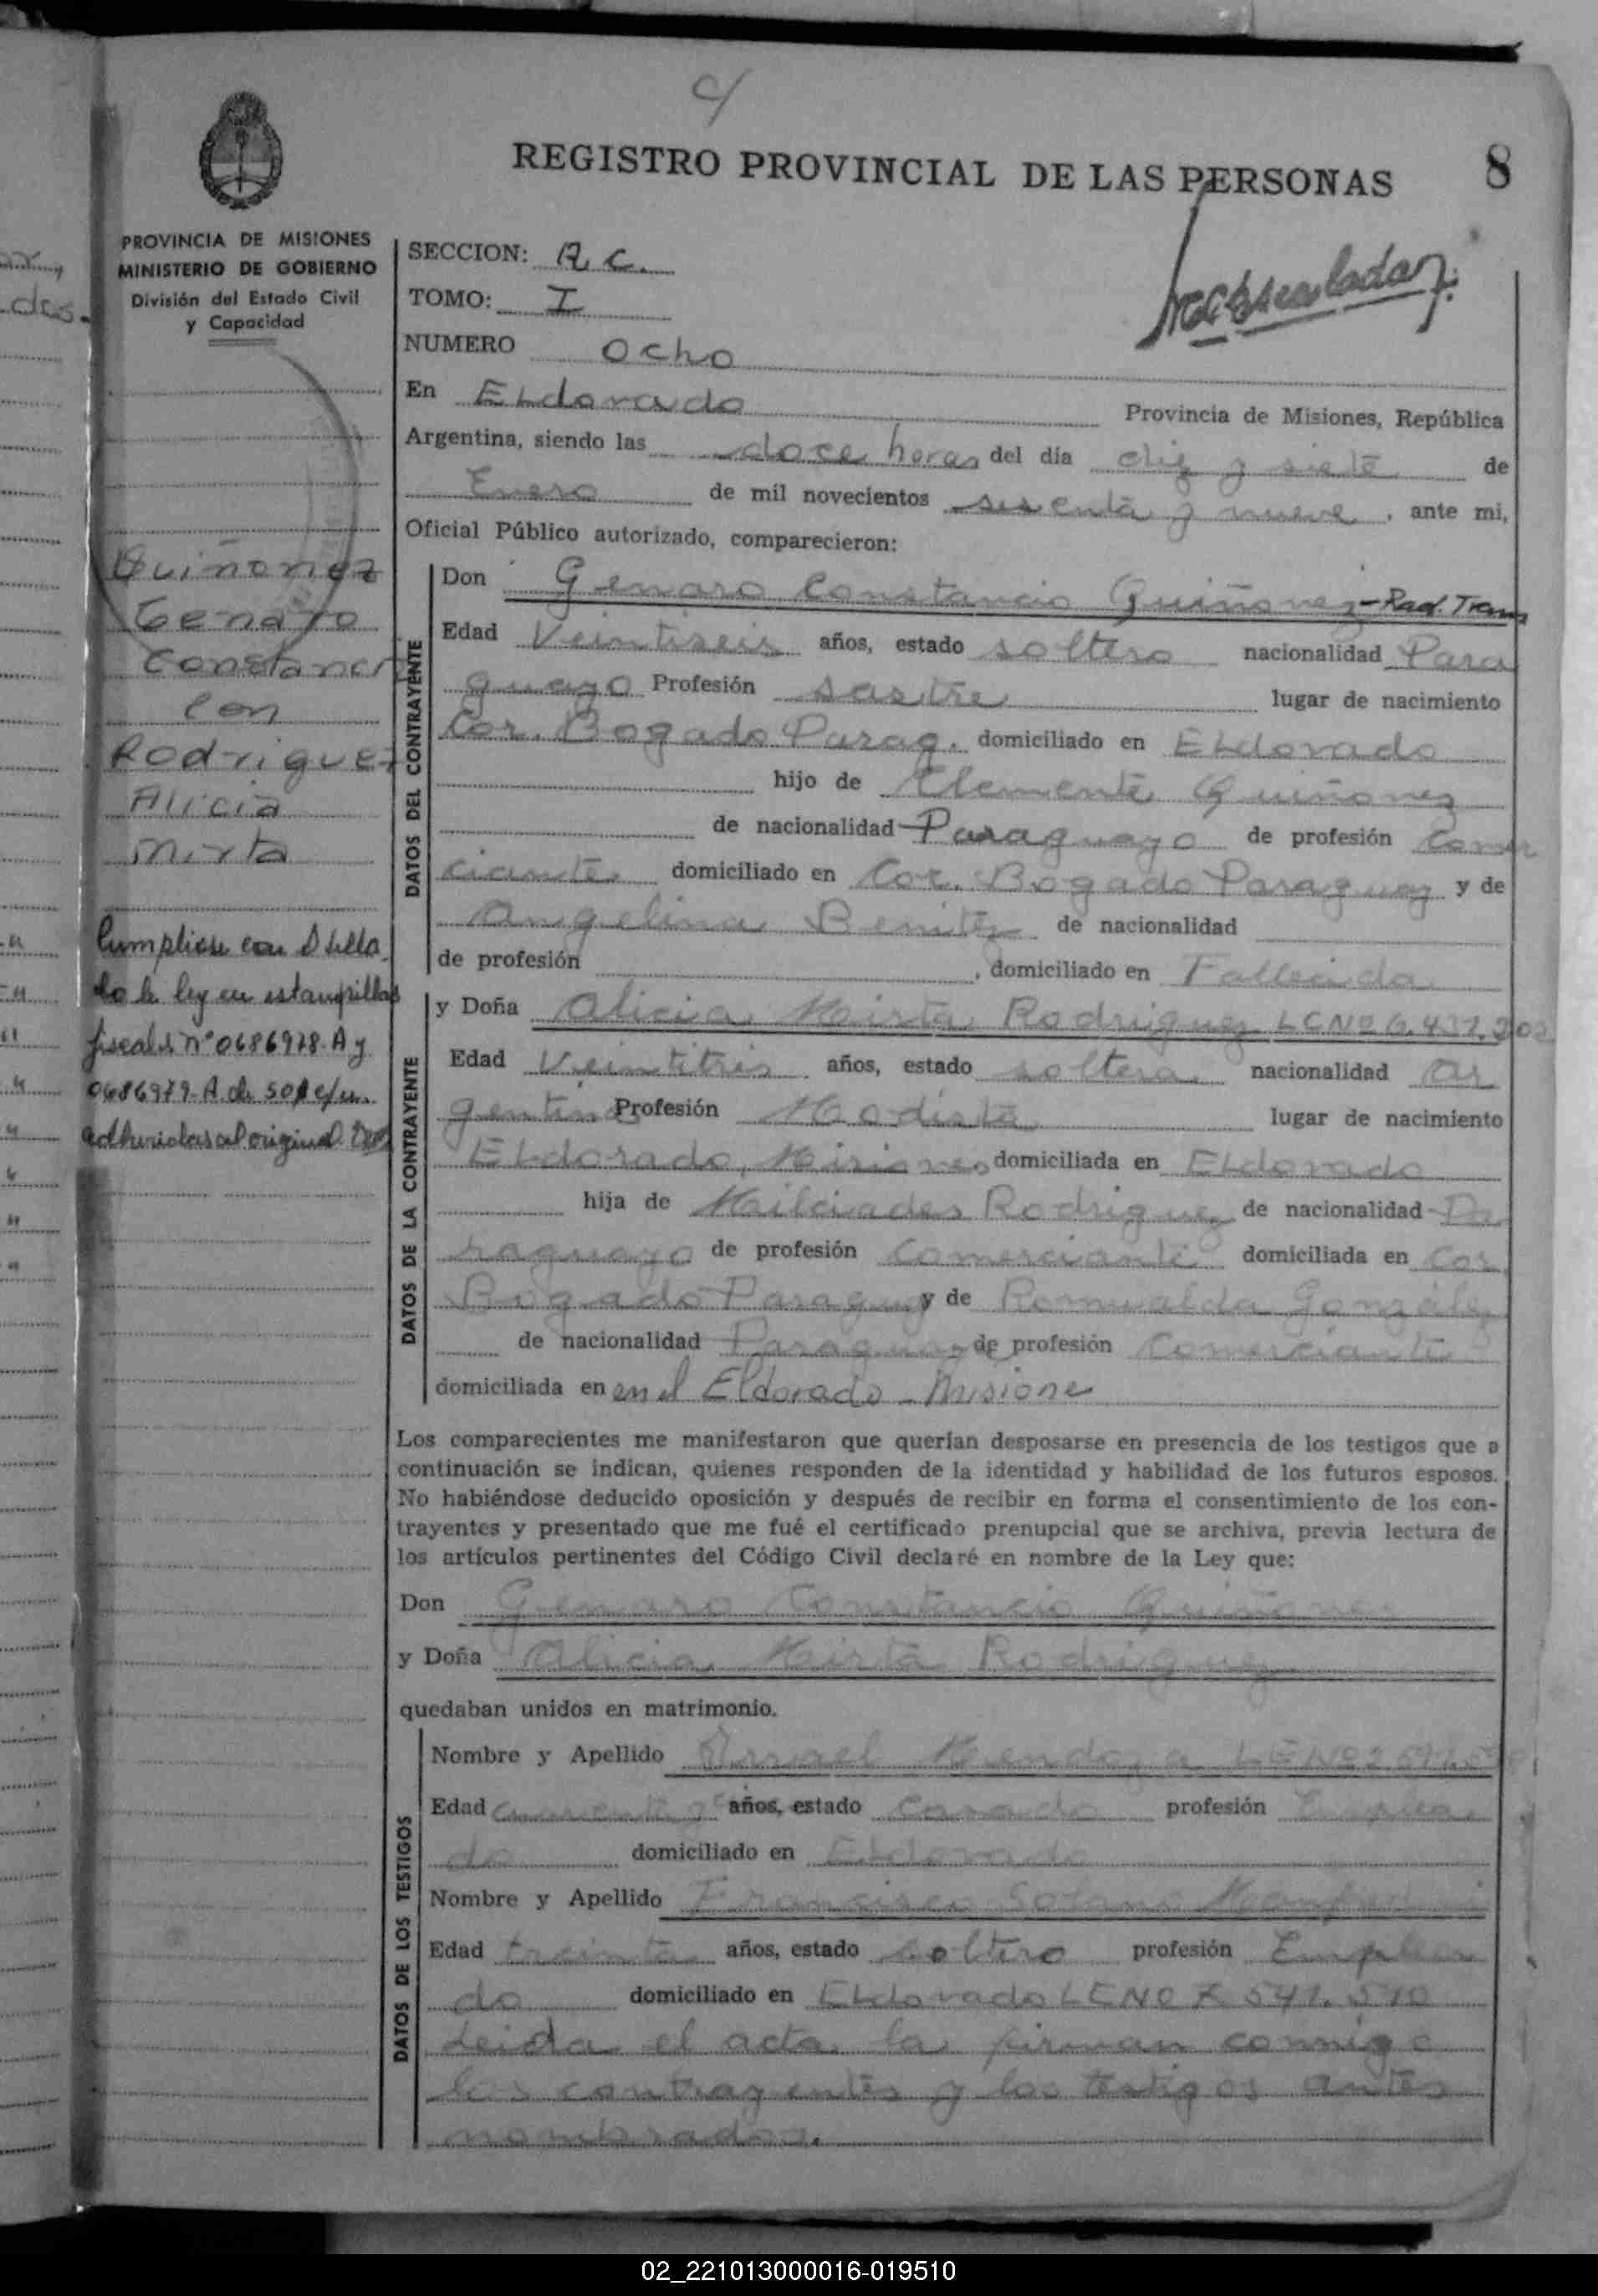 C/
REGISTRO PROVINCIAL DE LAS PERSONAS
8
PROVINCIA DE MISIONES
MINISTERIO DE GOBIERNO
División del Estado Civil
y Capacidad
SECCION: R. C.
TOMO: I
NUMERO Ocho
En ELdorado Provincia de Misiones, República
Argentina, siendo las doce horas del día diez y siete de
Enero de mil novecientos sesenta y nueve, ante mi,
Oficial Público autorizado, comparecieron:
Quiñonez
Genaro
Constancio
Con
Rodriguez
Alicia
Mirta
Cumpliose con D sella
do la ley en estampillas
fiscales n° 0686978-A y
0686979-A de 50 c/u.
adheridas al original
DATOS DEL CONTRAYENTE
Don Genaro Constancio Quiñonez - Rad. Tram
Edad Veintiseis años, estado soltero nacionalidad Para
guayo Profesión sastre lugar de nacimiento
Cor. Bogado Parag. domiciliado en ELdorado
hijo de Clemente Quiñonez
de nacionalidad Paraguayo de profesión Comer
ciante domiciliado en Cor. Bogado Paraguay y de
Angelina Benitez de nacionalidad
de profesión , domiciliado en Fallecida
DATOS DE LA CONTRAYENTE
y Doña Alicia Mirta Rodriguez LCNo 6.437.
Edad Veintitrés años, estado soltera nacionalidad Ar
gentina Profesión Modista lugar de nacimiento
ELdorado, Misiones domiciliada en ELdorado
hija de Milciades Rodriguez de nacionalidad Pa
raguayo de profesión Comerciante domiciliada en Cor
Bogado Paraguay y de Romualda González
de nacionalidad Paraguaya de profesión Comerciante
domiciliada en en el Eldorado - Misione
Los comparecientes me manifestaron que querían desposarse en presencia de los testigos que a
continuación se indican, quienes responden de la identidad y habilidad de los futuros esposos.
No habiéndose deducido oposición y después de recibir en forma el consentimiento de los con-
trayentes y presentado que me fué el certificado prenupcial que se archiva, previa lectura de
los artículos pertinentes del Código Civil declaré en nombre de la Ley que:
Don Genaro Constancio Quiñonez
y Doña Alicia Mirta Rodriguez
quedaban unidos en matrimonio.
DATOS DE LOS TESTIGOS
Nombre y Apellido Mendoza LENo
Edad años, estado Casado profesión Emplea
do domiciliado en ELdorado
Nombre y Apellido Francisco Solano
Edad treinta años, estado soltero profesión Emplea
do domiciliado en ELdorado LENo 7.541.510
Leida el acta la firman conmigo
los contrayentes y los testigos antes
nombrados.
02_221013000016-019510